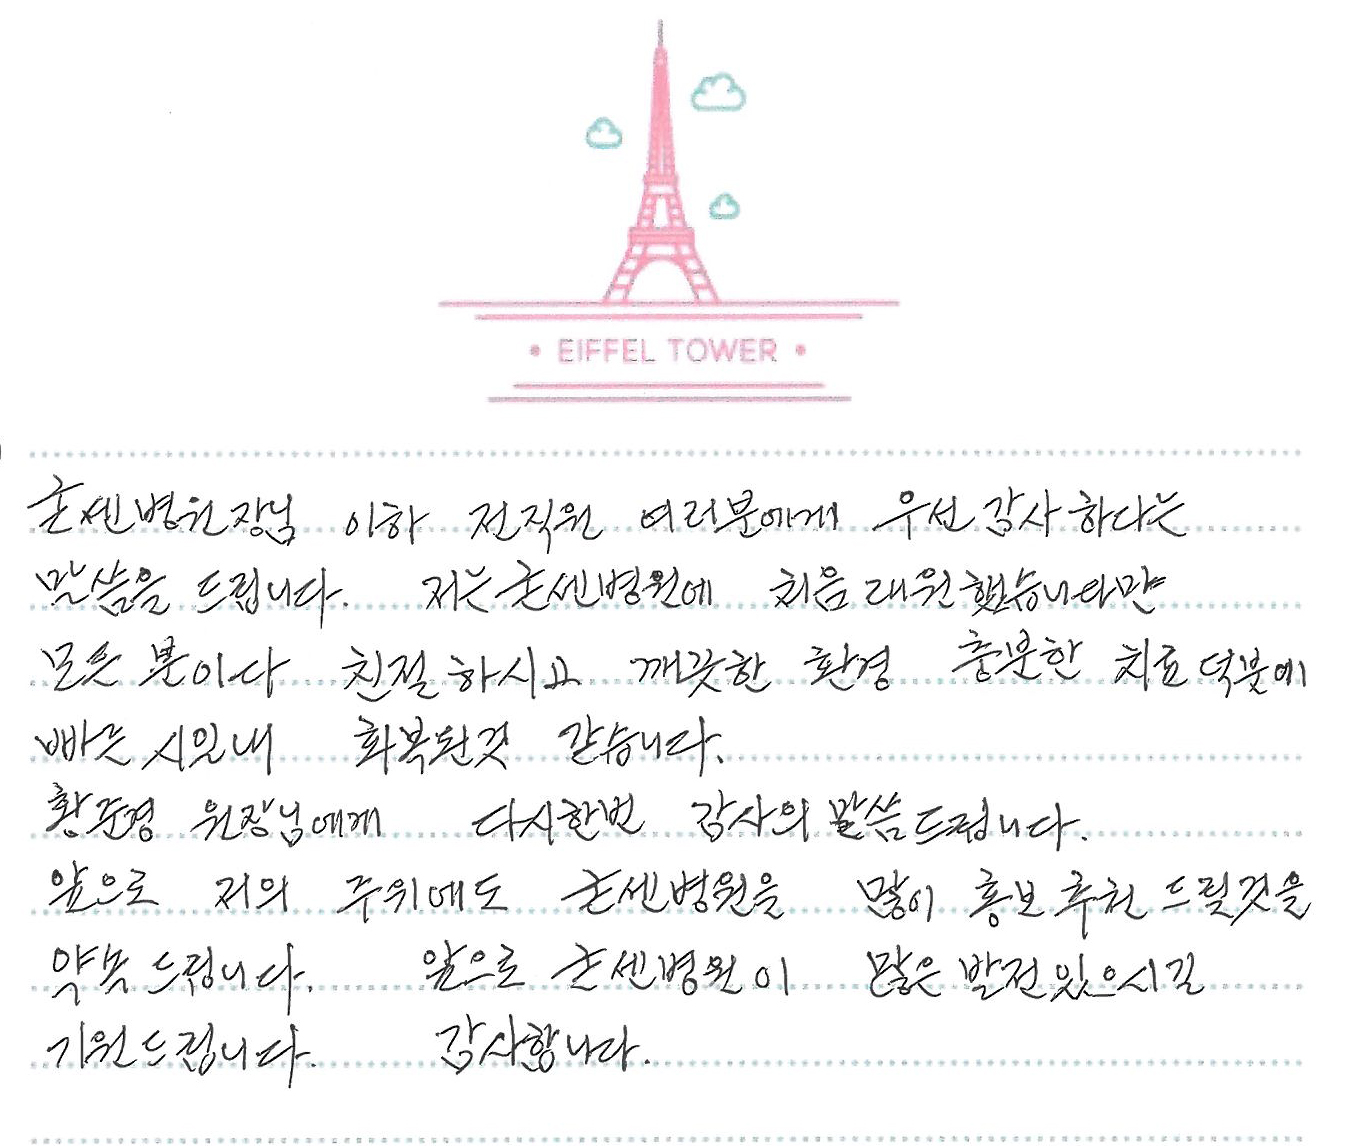 EIFFEL TOWER
굳센병원장님 이하 전직원 여러분에게 우선 감사하다는
말씀을 드립니다. 저는 굳센병원에 처음 내원했습니다만
모든 분이다 친절하시고 깨끗한 환경 충분한 치료 덕분에
빠른 시일내 회복된것 같습니다.
황준경 원장님에게 다시한번 감사의 말씀드립니다.
앞으로 저의 주위에도 굳센병원을 많이 홍보 추천 드릴것을
약속 드립니다. 앞으로 굳센병원이 많은 발전있으시길
기원드립니다. 감사합니다.